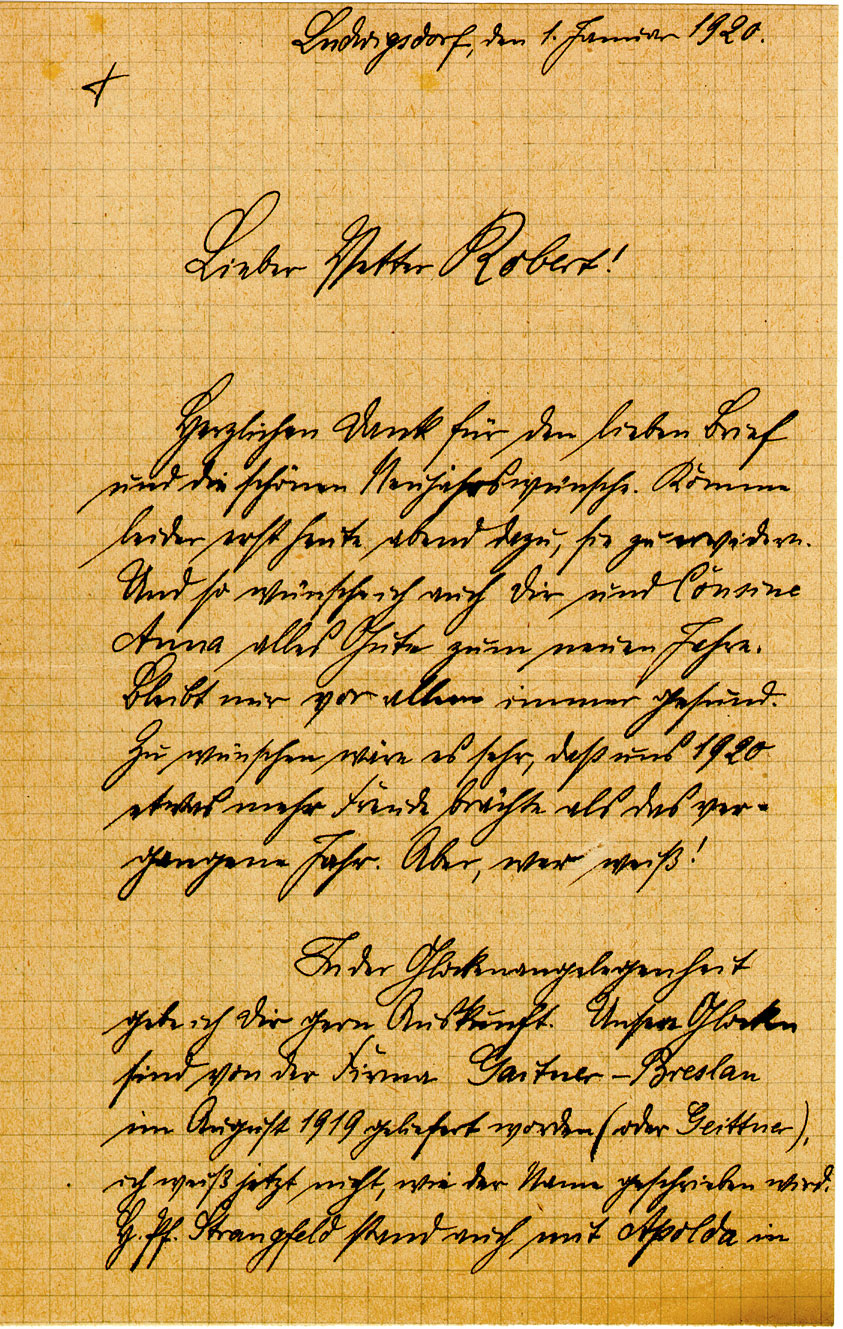 Ludwigsdorf, den 1. Januar 1920.
Lieber Vetter Robert!
Herzlichen Dank für den lieben Brief
und die schönen Neujahrswünsche. Komme
leider erst heute abend dazu, sie zu erwidern.
Und so wünsche ich auch Dir und Cousine
Anna alles Gute zum neuen Jahre.
Bleibt nur vor allem immer gesund.
Zu wünschen wäre es sehr, daß uns 1920
etwas mehr Freude brächte als das ver-
gangene Jahr. Aber, wer weiß!
In der Glockenangelegenheit
gebe ich Dir gern Auskunft. Unsere Glocken
sind von der Firma Gaitner - Breslau
im August 1919 geliefert worden (oder Geittner),
ich weiß jetzt nicht, wie der Name geschrieben wird.
H. Pf. Strangfeld stand auch mit Apolda in